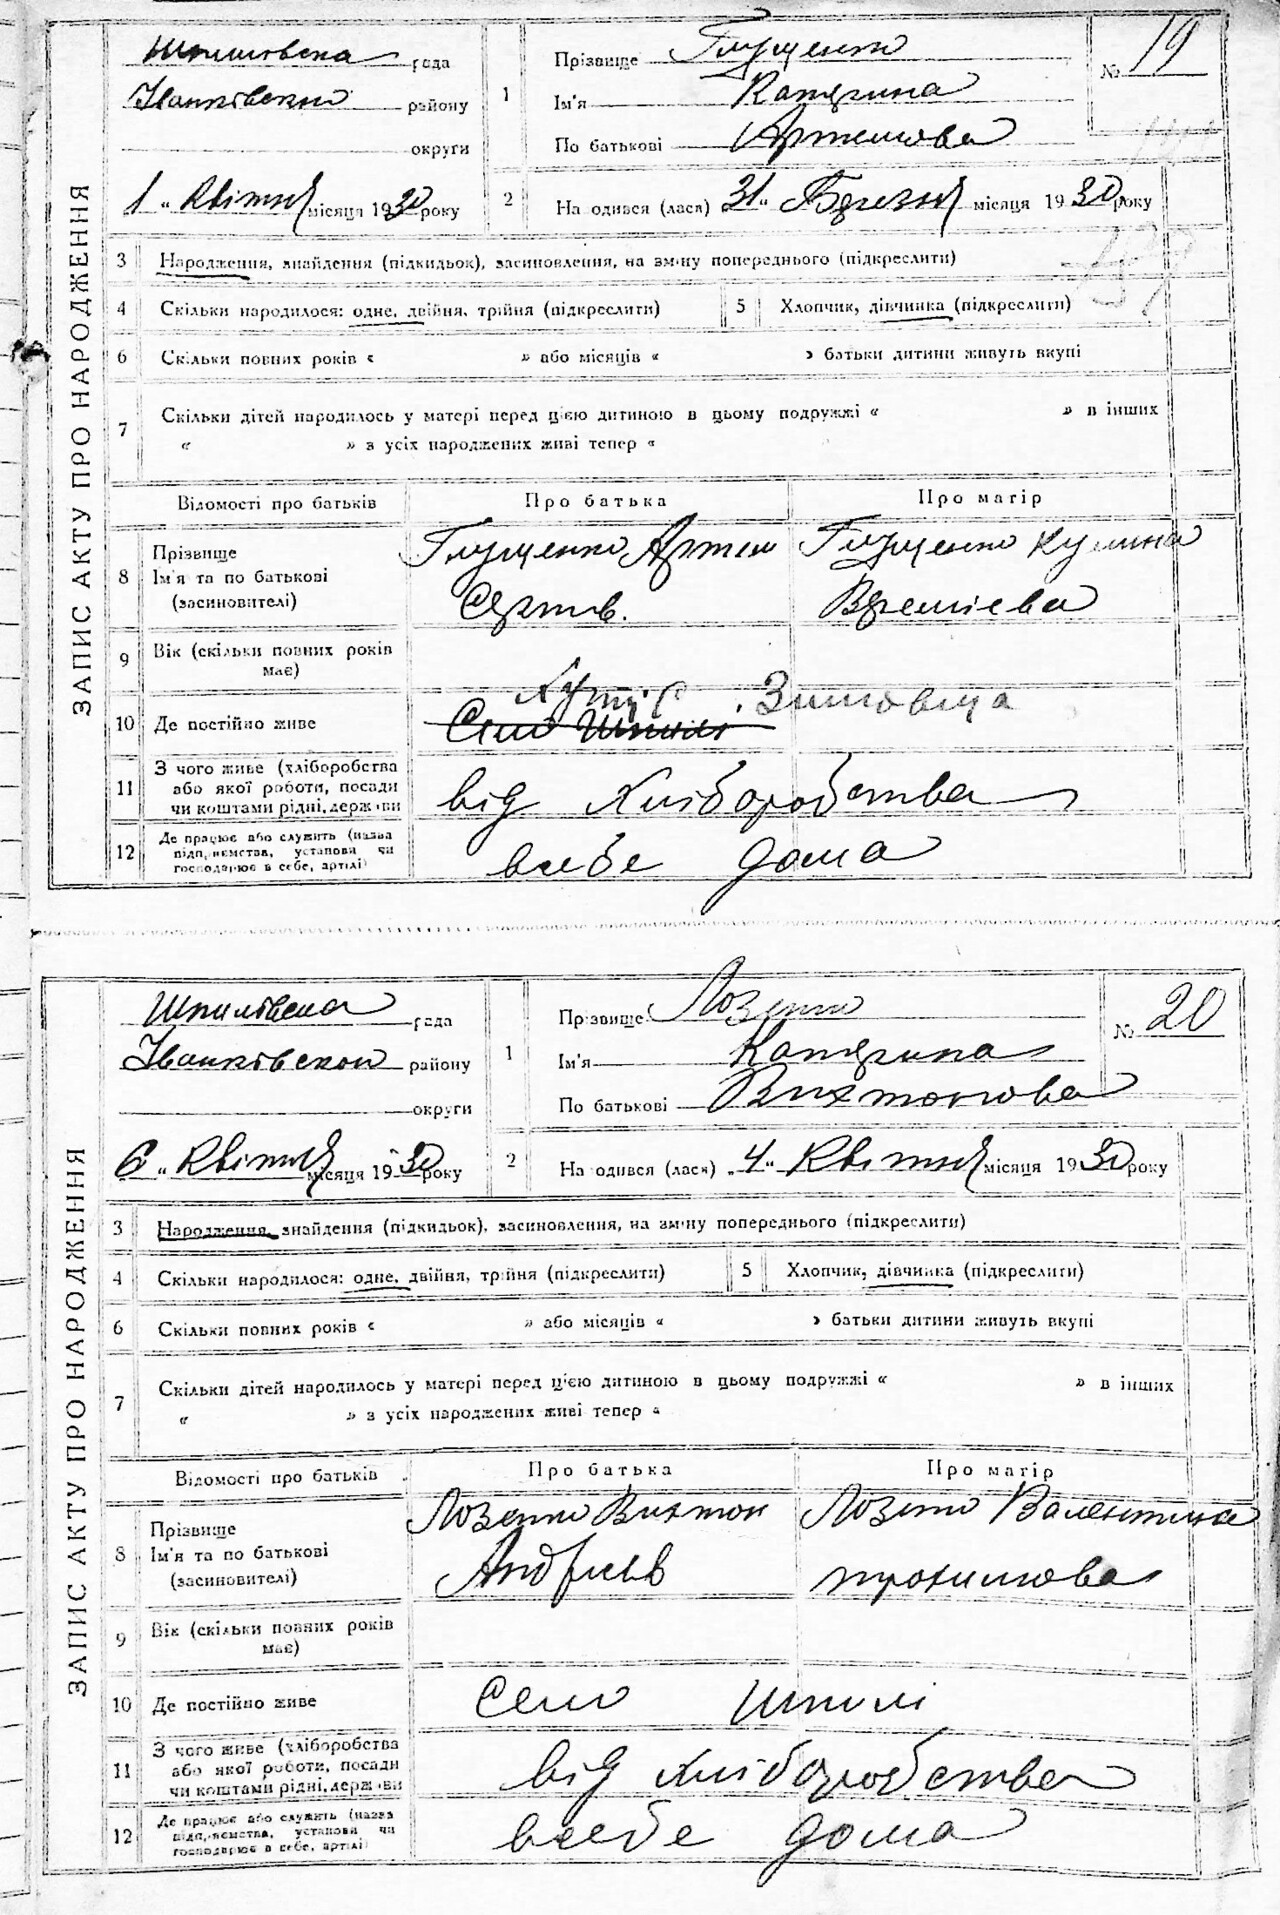 ЗАПИС АКТУ ПРО НАРОДЖЕННЯ
Шпилівська рада
Іванківського району
округи
1 " Квітня місяця 1930 року
1 Прізвище Глущенко
Ім'я Катерина
По батькові Артемова
№ 19
2 На одився (лася) 31 " Березня місяця 1930 року
3 Народження, знайдення (підкидьок), засиновлення, на зміну попереднього (підкреслити)
4 Скільки народилося: одне, двійня, трійня (підкреслити) 5 Хлопчик, дівчинка (підкреслити)
6 Скільки повних років « » або місяців « » батьки дитини живуть вкупі
7 Скільки дітей народилось у матері перед цією дитиною в цьому подружжі « » в інших
« » з усіх народжених живі тепер «
Відомості про батьків Про батька Про матір
8 Прізвище Ім'я та по батькові (засиновителі)
Глущенко Артем Глущенко Кулина
Вереміева
9 Вік (скільки повних років має)
10 Де постійно живе
Хутір Зимовища
Село Шпилі
11 З чого живе (хліборобства або якої роботи, посади чи коштами рідні, держави
від хліборобства
12 Де працює або служить (назва підприємства, установи чи господарює в себе, артілі)
всебе дома
ЗАПИС АКТУ ПРО НАРОДЖЕННЯ
Шпилівська рада
Іванківської району
округи
6 " Квітня місяця 1930 року
1 Прізвище Лозенко
Ім'я Катерина
По батькові Вихтонова
№ 20
2 На одився (лася) „ 4 " Квітня місяця 1930 року
3 Народження, знайдення (підкидьок), засиновлення, на зміну попереднього (підкреслити)
4 Скільки народилося: одне, двійня, трійня (підкреслити) 5 Хлопчик, дівчинка (підкреслити)
6 Скільки повних років « » або місяців « » батьки дитини живуть вкупі
7 Скільки дітей народилось у матері перед цією дитиною в цьому подружжі « » в інших
« » з усіх народжених живі тепер «
Відомості про батьків Про батька Про матір
8 Прізвище Ім'я та по батькові (засиновителі)
Лозенко Вихтон Лозенко Валентина
Андріїв трохимова
9 Вік (скільки повних років має)
10 Де постійно живе
Село Шпилі
11 З чого живе (хліборобства або якої роботи, посади чи коштами рідні, держави
від хліборобства
12 Де працює або служить (назва підприємства, установи чи господарює в себе, артілі)
всебе дома